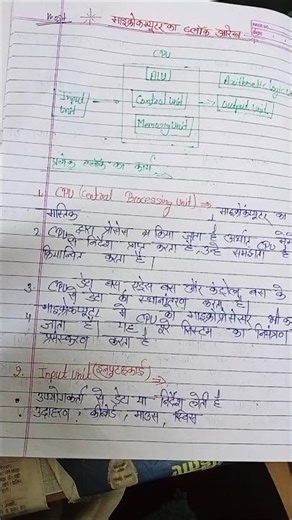 माइक्रोकम्प्यूटर का ब्लॉक आरेख
CPU
ALU
Arithmetic Logic Unit
Input Unit
Control Unit
Output Unit
Memory Unit
प्रत्येक ब्लॉक का कार्य
1. CPU (Central Processing Unit) → माइक्रोकंप्यूटर का
मास्तिक
2. CPU द्वारा प्रोसेस किया जाता है अर्थात
से निर्देश प्राप्त करता है, उन्हें समझता है
क्रियान्वित करता है।
3. CPU डेटा बस, एड्रेस बस और कंट्रोल बस के
से डेटा का स्थानांतरण करता है।
4. माइक्रोकंप्यूटर से CPU को माइक्रोप्रोसेसर भी क
जाता है। यह पूरे सिस्टम का नियंत्रण
प्रसंस्करण करता है
2. Input Unit (इनपुट इकाई) →
• उपयोगकर्ता से डेटा या निर्देश लेती है
• उदाहरण, कीबोर्ड, माउस, स्विस